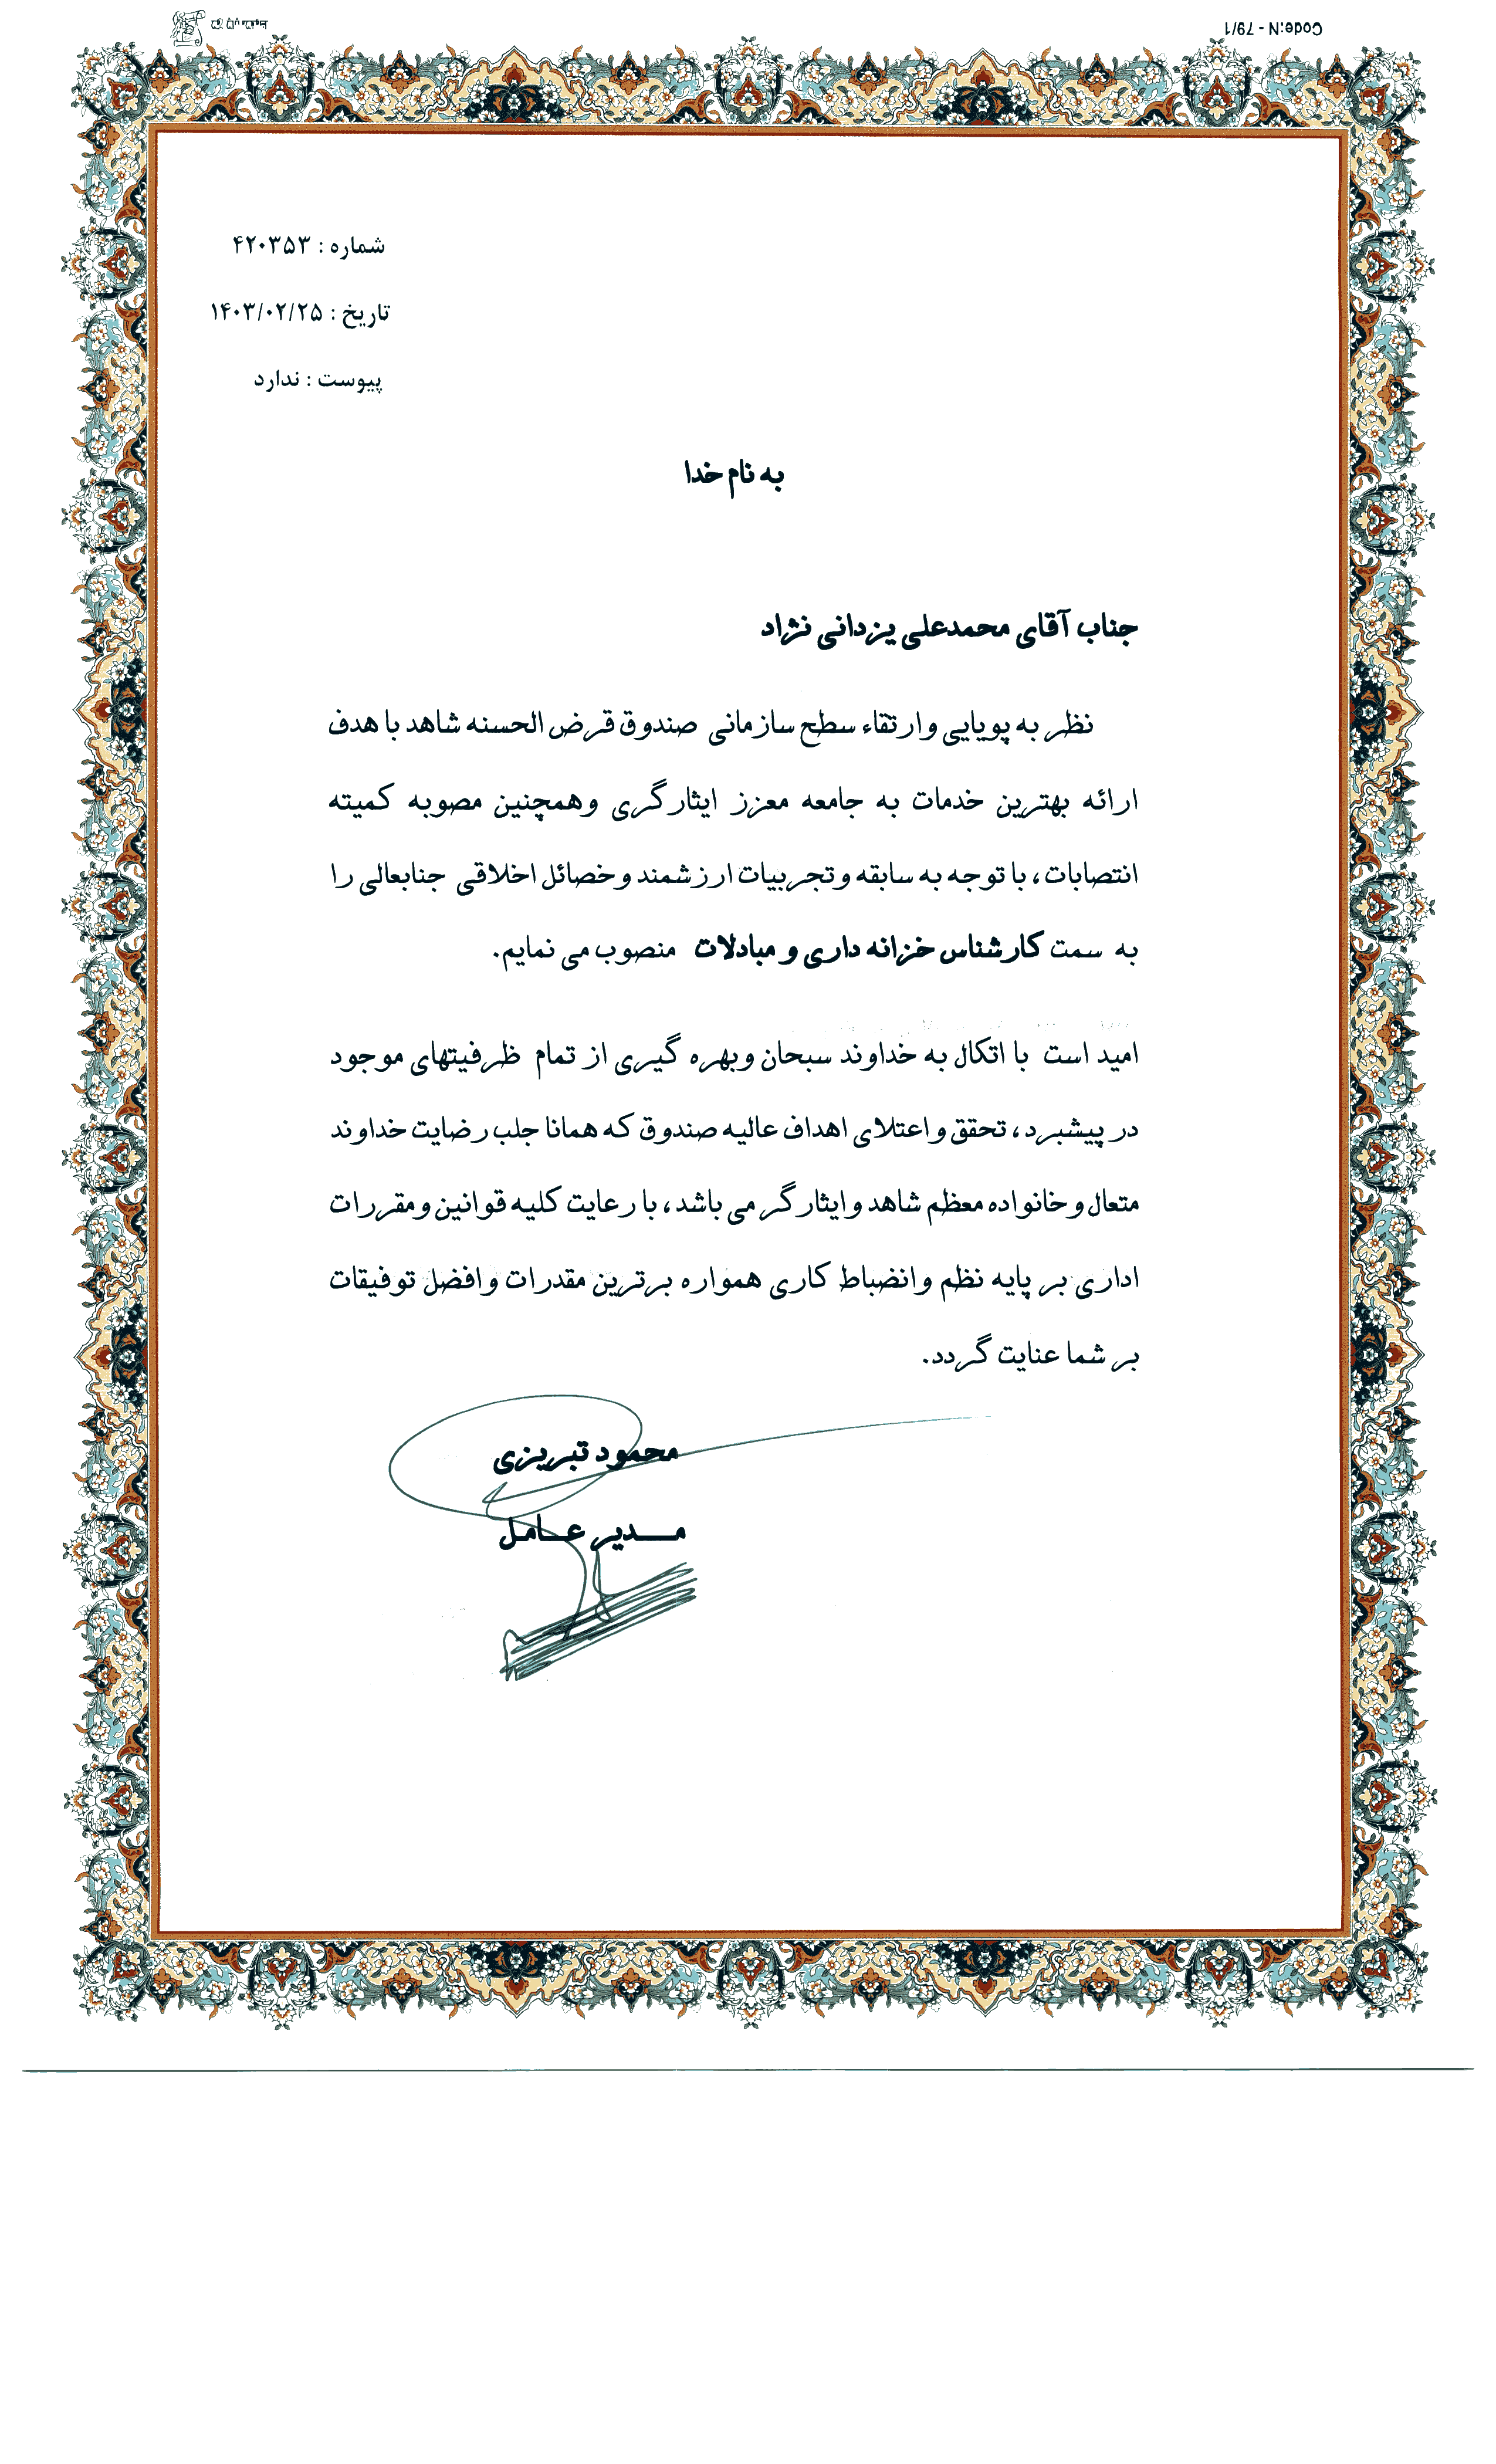 Code:N - 79/1
شماره : ۴۲۰۳۵۳
تاریخ : ۱۴۰۳/۰۲/۲۵
پیوست : ندارد
به نام خدا
جناب آقای محمدعلی یزدانی نژاد
نظر به پویایی وارتقاء سطح سازمانی صندوق قرض الحسنه شاهد با هدف
ارائه بهترین خدمات به جامعه معزز ایثارگری وهمچنین مصوبه کمیته
انتصابات، با توجه به سابقه وتجربیات ارزشمند وخصائل اخلاقی جنابعالی را
به سمت کارشناس خزانه داری و مبادلات منصوب می نمایم.
امید است با اتکال به خداوند سبحان وبهره گیری از تمام ظرفیتهای موجود
در پیشبرد، تحقق واعتلای اهداف عالیه صندوق که همانا جلب رضایت خداوند
متعال وخانواده معظم شاهد وایثارگر می باشد، با رعایت کلیه قوانین ومقررات
اداری بر پایه نظم وانضباط کاری همواره برترین مقدرات وافضل توفیقات
بر شما عنایت گردد.
محمود تبریزی
مـــدیر عـــامل